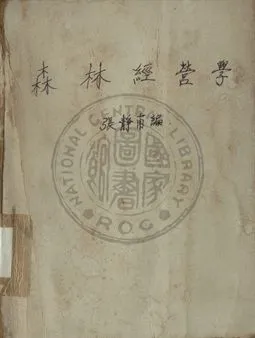 森林經營學
張靜甫編
NATIONAL CENTRAL LIBRARY
ROC
國家圖書館